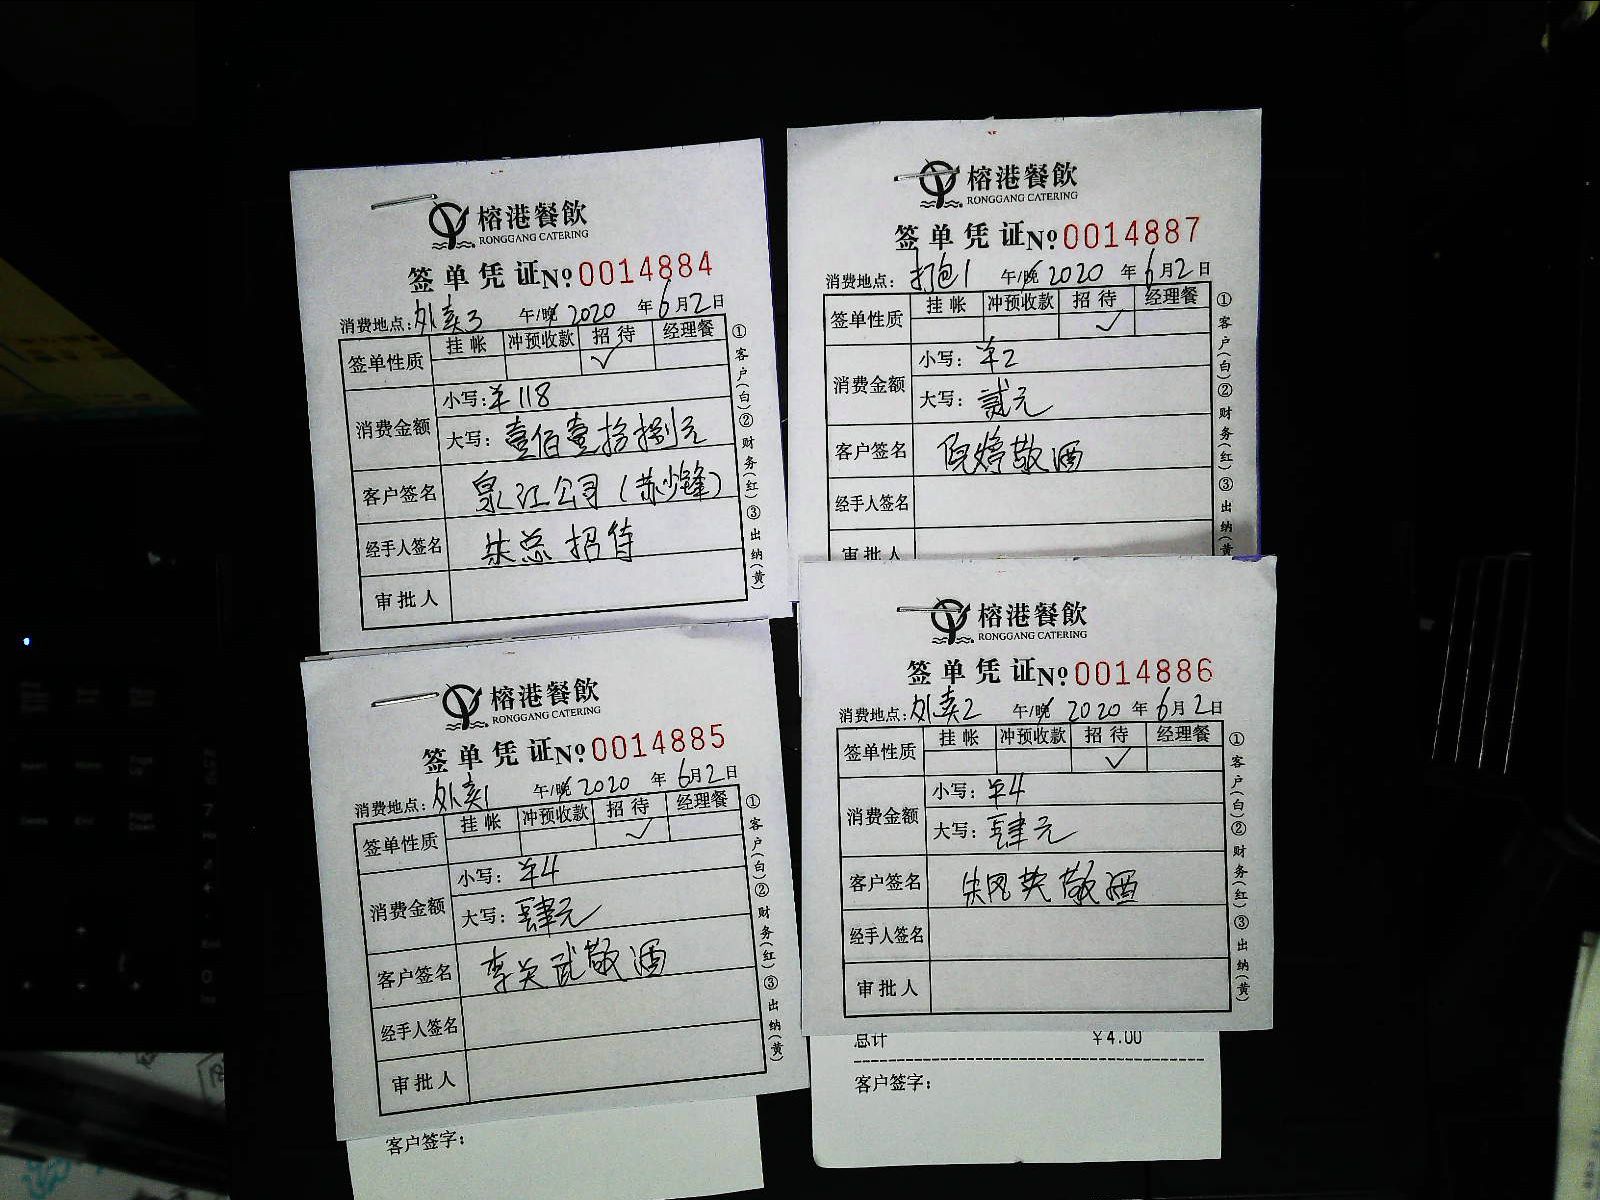 榕港餐飲
RONGGANG CATERING
签单凭证№0014884
消费地点：外卖3 午/晚 2020年6月2日
签单性质 挂帐 冲预收款 招待 经理餐
✓
消费金额 小写：¥118
大写：壹佰壹拾捌元
客户签名 泉江公司（苏少锋）
经手人签名 朱总招待
审批人
①客户(白)②财务(红)③出纳(黄)
榕港餐飲
RONGGANG CATERING
签单凭证№0014887
消费地点：打包1 午/晚 2020年6月2日
签单性质 挂帐 冲预收款 招待 经理餐
✓
消费金额 小写：¥2
大写：贰元
客户签名 倪婷敬酒
经手人签名
审批人
①客户(白)②财务(红)③出纳(黄
榕港餐飲
RONGGANG CATERING
签单凭证№0014885
消费地点：外卖1 午/晚 2020年6月2日
签单性质 挂帐 冲预收款 招待 经理餐
✓
消费金额 小写：¥4
大写：肆元
客户签名 李关武敬酒
经手人签名
审批人
①客户(白)②财务(红)③出纳(黄)
客户签字：
榕港餐飲
RONGGANG CATERING
签单凭证№0014886
消费地点：外卖2 午/晚 2020年6月2日
签单性质 挂帐 冲预收款 招待 经理餐
✓
消费金额 小写：¥4
大写：肆元
客户签名 朱凤英敬酒
经手人签名
审批人
①客户(白)②财务(红)③出纳(黄)
总计 ¥4.00
客户签字：